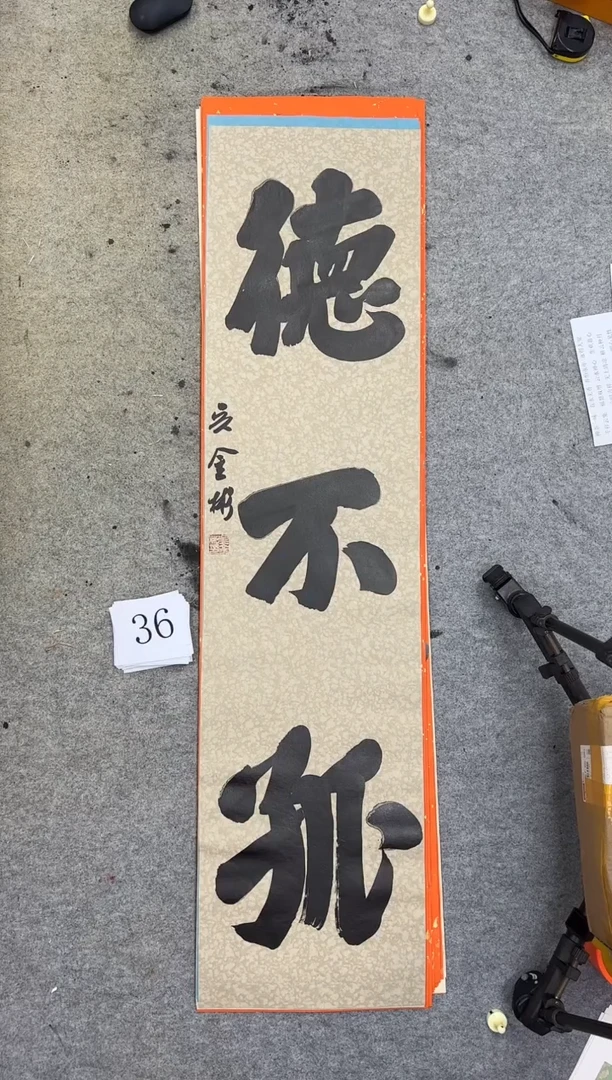 德不孤
吴金彬
36